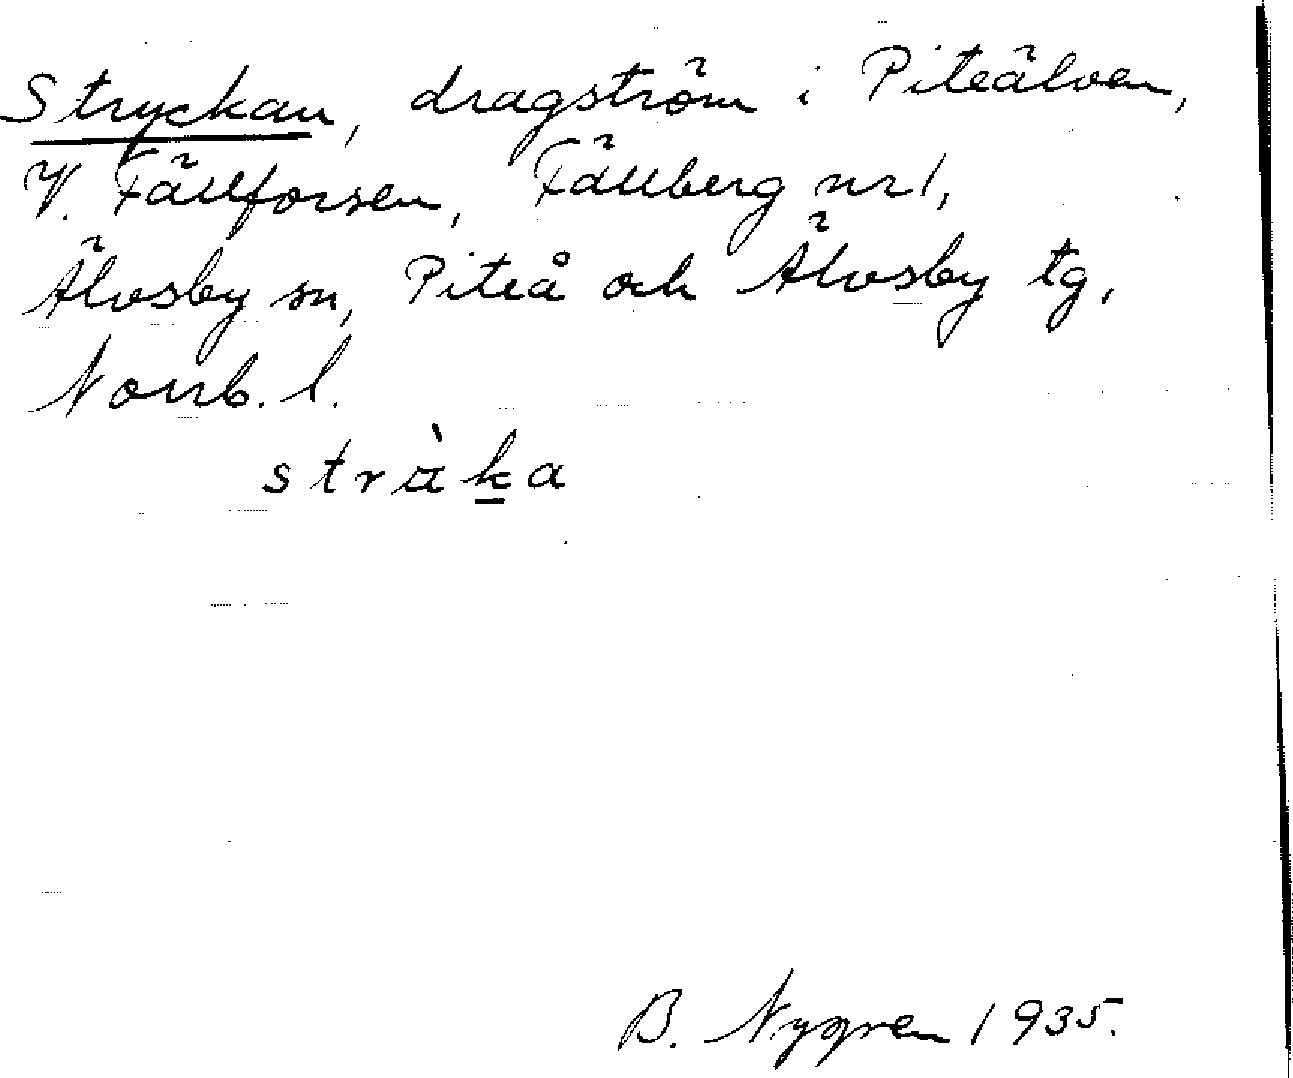 Stryckan, dragström i Piteälven,
V. Fällforsen, Fällberg nr 1,
Älvsby sn, Piteå och Älvsby tg,
Norrb. l.
stràka
B. Nygren 1935.